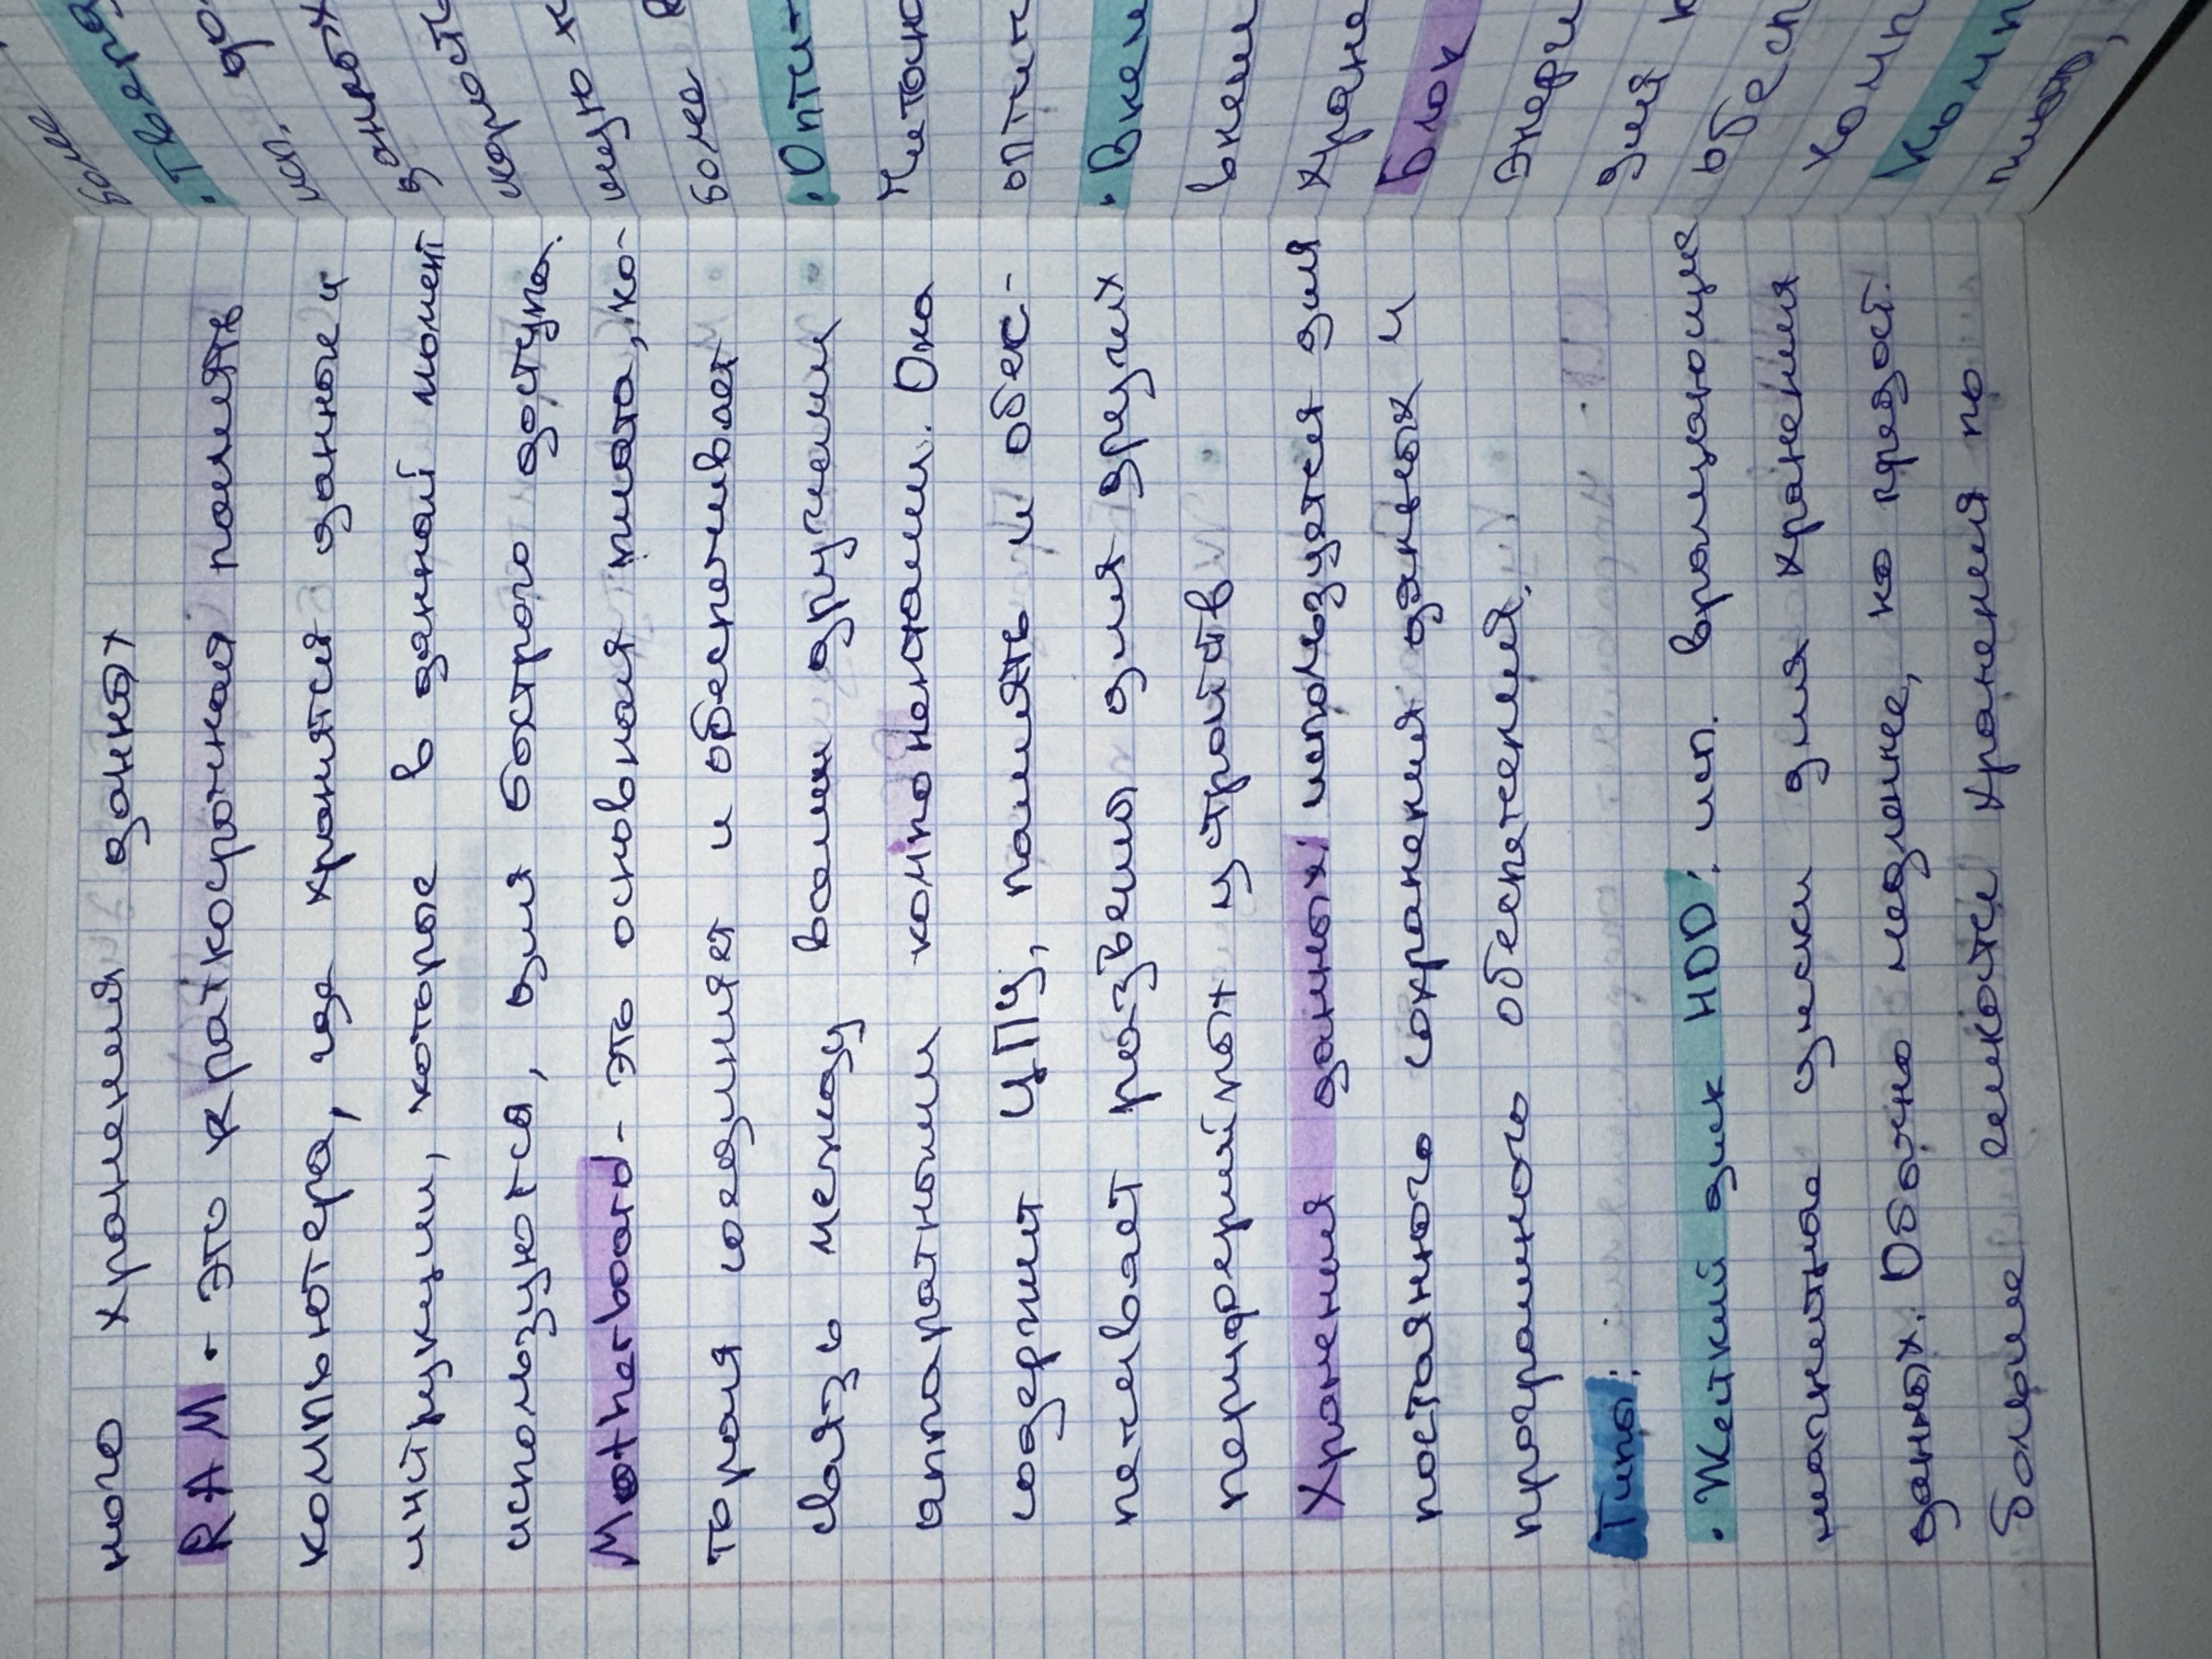 ного хранения данных
RAM - это краткосрочная память
компьютера, где хранятся данные и
инструкции, которые в данной момент
используются, для быстрого доступа.
Motherboard - это основная плата, ко-
торая соединяет и обеспечивает
связь между всеми другими
аппаратными компонентами. Она
содержит ЦПУ, память и обес-
печивает разъемы для других
периферийных устройств
Хранения данных: используется для
постоянного сохранения данных и
програмного обеспечения.
Типы:
• Жесткий диск HDD: исп. вращающие
магнитные диски для хранения
данных. Обычно медленнее, но предост.
больше емкости хранения по
более
• Тверд
исп. до
данных
скорость
шую
более
• Опти-
Читаю
оптич
• Внеш
внеш
Хране
Блок
Энерги
для к
обесп
комп
Комп
плата,